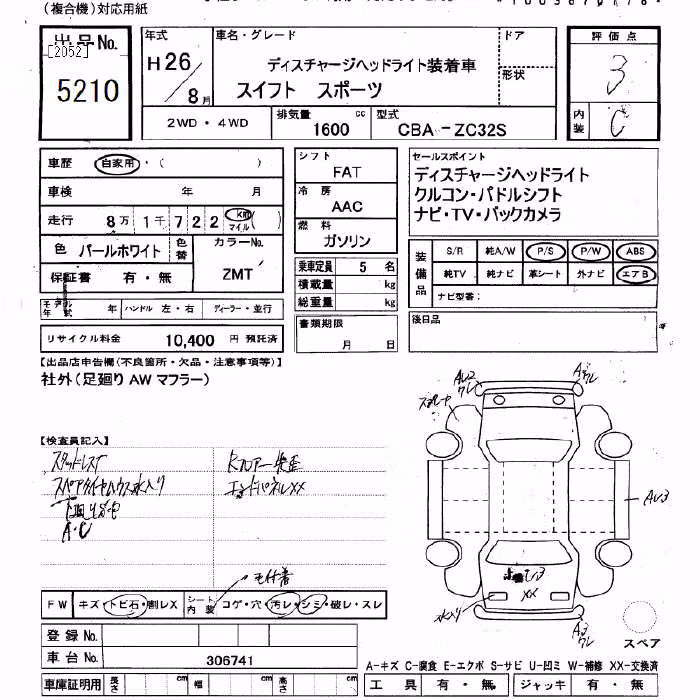 (複合機)対応用紙
出品No.
[2052]
5210
年式
H26/8月
車名・グレード
ディスチャージヘッドライト装着車
スイフト スポーツ
ドア
形状
2WD・4WD
排気量 cc
1600
型式
CBA-ZC32S
評価点
3
内装
C
車歴 自家用・( )
車検 年 月
走行 8万1千722 km マイル ( )
色 パールホワイト 色替
カラーNo.
ZMT
保証書 有・無
モデル年式 年 ハンドル 左・右 ディーラー・並行
リサイクル料金 10,400 円 預託済
シフト
FAT
冷房
AAC
燃料
ガソリン
乗車定員 5 名
積載量 kg
総重量 kg
書類期限
月 日
セールスポイント
ディスチャージヘッドライト
クルコン・パドルシフト
ナビ・TV・バックカメラ
装備品
S/R 純A/W P/S P/W ABS
純TV 純ナビ 革シート 外ナビ エアB
ナビ型番:
後日品
【出品店申告欄(不良箇所・欠品・注意事項等)】
社外(足廻り AW マフラー)
【検査員記入】
スタッドレス
下廻りサビ
A・C
エンドパネルXX
FW キズ・トビ石・割レX
シート内装 コゲ・穴・汚レ・シミ・破レ・スレ
登録No.
車台No. 306741
車庫証明用 長さ cm 幅 cm 高さ cm
A2
ワレ
A3
ワレ
AU3
U3
XX
水入り
A3
ワレ
スペア
A-キズ C-腐食 E-エクボ S-サビ U-凹ミ W-補修 XX-交換済
工具 有・無 ジャッキ 有・無